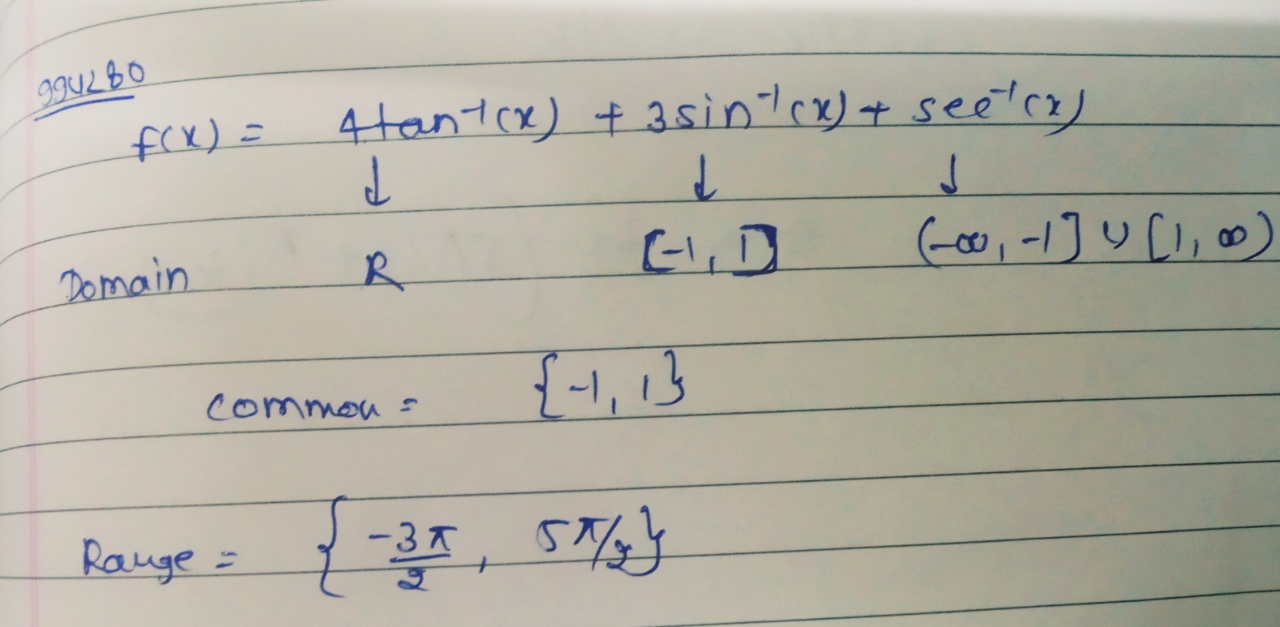 994280
f(x) = 4tan⁻¹(x) + 3sin⁻¹(x) + sec⁻¹(x)
↓ ↓ ↓
Domain R [-1, 1] (-∞, -1] ∪ [1, ∞)
common = {-1, 1}
Range = { -3π/2 , 5π/2 }